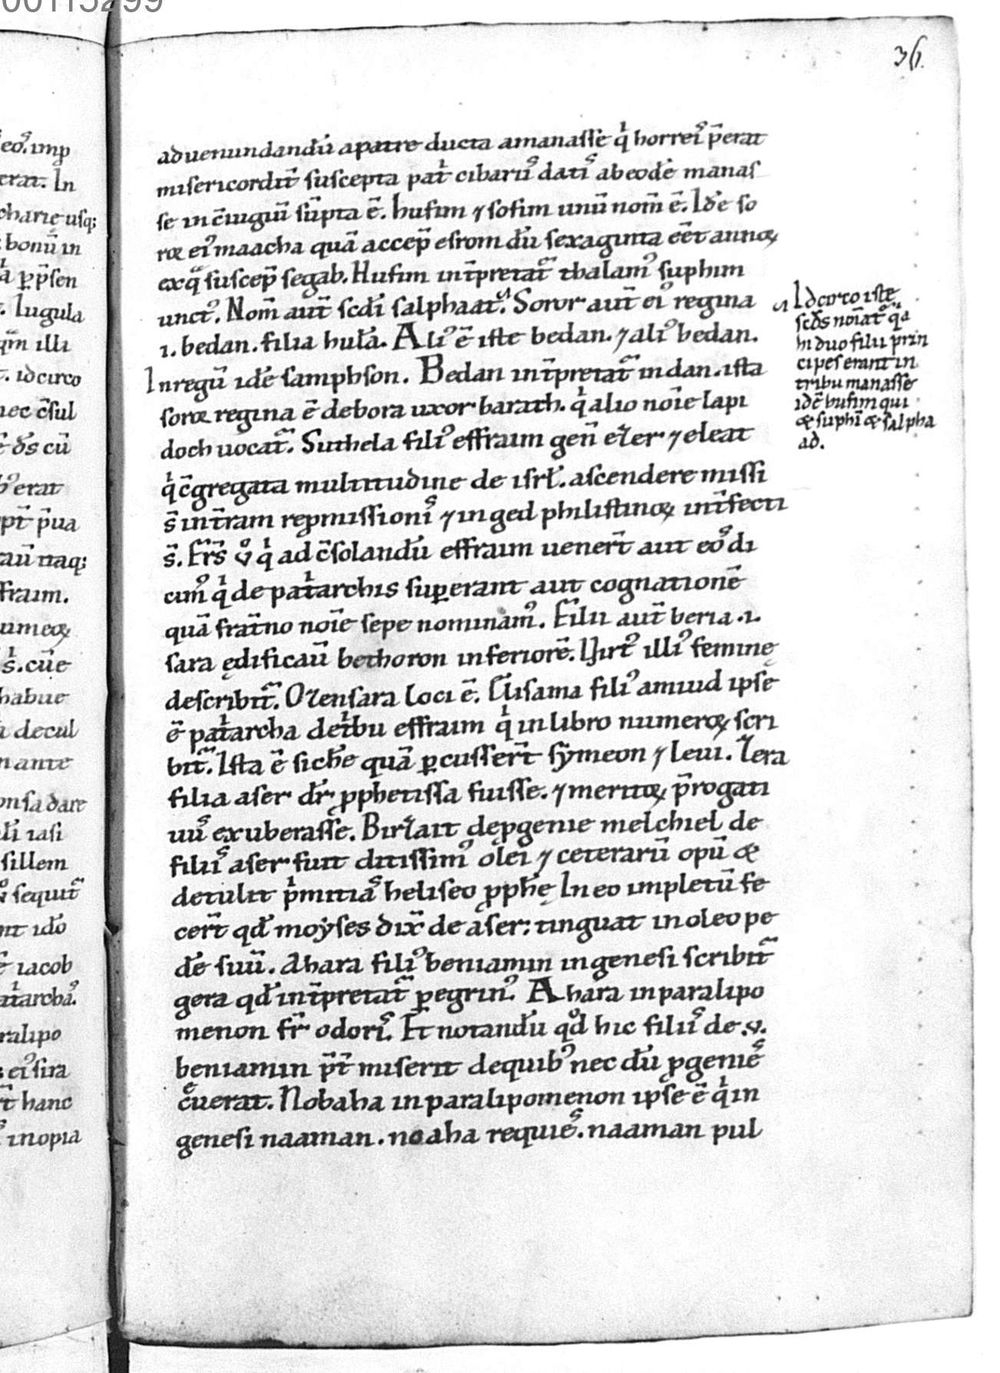 00115299
36.
eo᷒. imp
erat. In
charie usq;
bonū in
ꝑp̄sen
Iugula
qm̄ illi
idcirco
nec c̄sul
ē ds̄ cū
erat
pt̄ p̄ua
taū naq;
ffraim.
umeoꝝ
s̄. cūe
habue
decul
n ante
onsa dare
iasi
sillem
sequit̄
nt idō
ē iacob
at̄archa᷒.
ralipo
ei᷒ sira
t̄ hanc
inopia
aduenundandū apatre ducta amanasse qͥ horrei᷒ p̄erat
misericordit̄ suscepta pat̄ cibariu᷒ dati᷒ abeodē manas
se in c̄iugiū sūpta ē. husim ⁊ sofim unū nom̄ ē. Idē so
roꝝ ei᷒ maacha quā accep̄ esrom dū sexaginta eēt annoꝝ
exq̄ suscep̄ segab. Husim int̄pretat̄ thalam᷒ suphim
unct᷒. Nom̄ aut̄ scd̄i salphaat. Soror aut̄ ei᷒ regina
.i. bedan. filia hul̄a. Ali᷒ ē iste bedan. ⁊ ali᷒ bedan.
Inregū idē sampbson. Bedan int̄pretat̄ in dan. ista
soroꝝ regina ē debora uxor barath. qͥ alio noīe lapi
doch uocat̄. Suthela fili᷒ effraim gen̄ ezer ⁊ eleat
qͥ c̄gregata multitudine de isrl̄. ascendere missi
s̄ int̄ram repmissioni᷒ ⁊ inged philistinoꝝ int̄fecti
s̄. Fr̄s ꝟ qͥ ad c̄solandū effraim uener̄t aut eo᷒ di
cim᷒ qͥ de pat̄archis suꝑerant aut cognationē
quā frat̄no noīe sepe nominam᷒. Filii aut̄ beria .i.
sara ędificaū bethoron inferiorē. Uirt᷒ illi᷒ feminę
describit̄. Ozensara loci ē. Elisama fili᷒ amiud ipsē
ē pat̄archa det̄bu effraim qͥ in libro numeroꝝ scri
bit̄. Ista ē sichē quā ꝑcusser̄t sȳmeon ⁊ leui. Zera
filia aser dr̄ ꝓphetissa fuisse. ⁊ meritoꝝ p̄rogati
uū exuberasse. Birzait deꝓgenie melchiel de
filiis aser fuit ditissim᷒ olei ⁊ ceterarū opū ꝙ
detulit p̄mitia᷒ heliseo ꝓphę. In eo impletū fe
cer̄t qd̄ moẏses dix̄ de aser: tinguat in oleo pe
dē suū. Ahara fili᷒ beniamin in genesi scribit̄
gera qd̄ int̄pretat̄ ꝑegrin᷒. Ahara in paralipo
menon fr̄ odori᷒. Et notandū qd̄ hic filiu᷒ de .v.
beniamin p̄t̄ miserit dequib᷒ nec dū ꝓgenie᷒
c̄uerat. Nobaha in paralipomenon ipse ē qͥ in
genesi naaman. noaha requie᷒. naaman pul
Idcirco iste
scds̄ noīat̄ qa
hi duo filii prin
cipes erant in
tribu manasse
idē husim qui
⁊ suphī ⁊ salpha
ad.